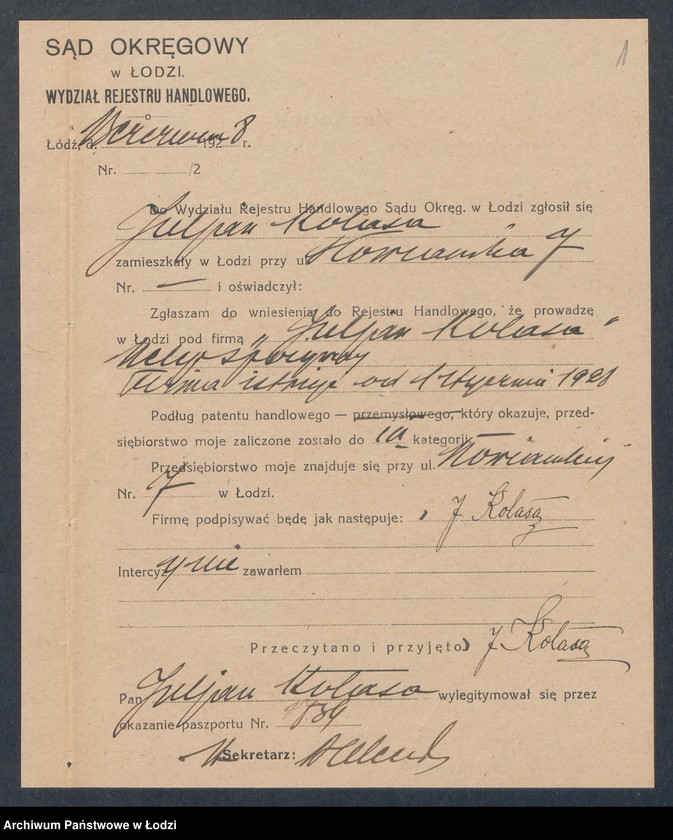 1
SĄD OKRĘGOWY
W ŁODZI.
WYDZIAŁ REJESTRU HANDLOWEGO.
Łódź, d. czerwca 1928 r.
Nr. /2
Do Wydziału Rejestru Handlowego Sądu Okręg. w Łodzi zgłosił się
Juljan Kolasa
zamieszkały w Łodzi przy ul. 7
Nr. — i oświadczył:
Zgłaszam do wniesienia do Rejestru Handlowego, że prowadzę
w Łodzi pod firmą „Juljan Kolasa"
Firma istnieje od 1 stycznia 1928
Podług patentu handlowego — przemysłowego, który okazuje, przed-
siębiorstwo moje zaliczone zostało do kategorji
Przedsiębiorstwo moje znajduje się przy ul.
Nr. 7 w Łodzi.
Firmę podpisywać będę jak następuje: J Kolasa
Intercyzy nie zawarłem
Przeczytano i przyjęto) J Kolasa
Pan Juljan Kolasa wylegitymował się przez
okazanie paszportu Nr.
Sekretarz:
Archiwum Państwowe w Łodzi